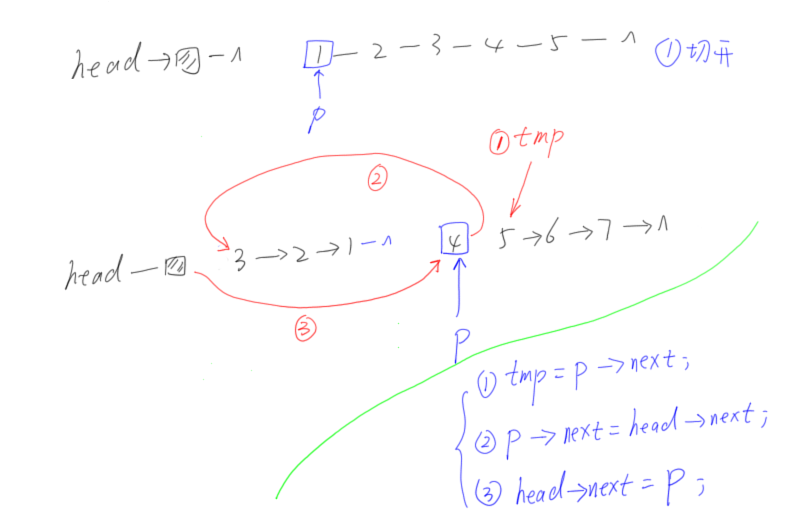 head→ - ∧ 1 - 2 - 3 - 4 - 5 - ∧ ①切开
p
①tmp
②
3→2→1-∧ 4 5→6→7→∧
head-
③
p
①tmp=p→next;
②p→next=head→next;
③head→next=p;